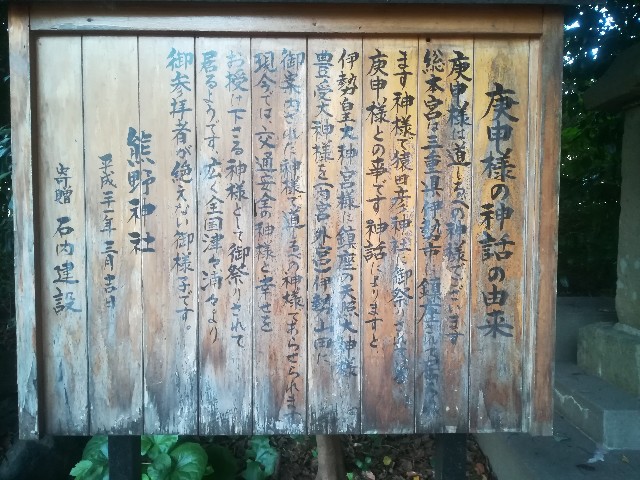 庚申様の神話の由来
庚申様は道しるべの神様でございます
総本宮は三重県伊勢市に鎮座されて居り
ます神様で猿田彦神社に御祭りされて
庚申様との事です神話によりますと
伊勢皇大神宮様に鎮座の天照大神様
豊受大神様を(内宮外宮)伊勢山田に
御案内された神様で道しるの神様であらせられます
現今では交通安全の神様と幸せを
お授け下さる神様として御祭りされて
居るようです広く全国津々浦々より
御参拝者が絶えない御様子です。
熊野神社
平成二十一年三月吉日
寄贈 石内建設